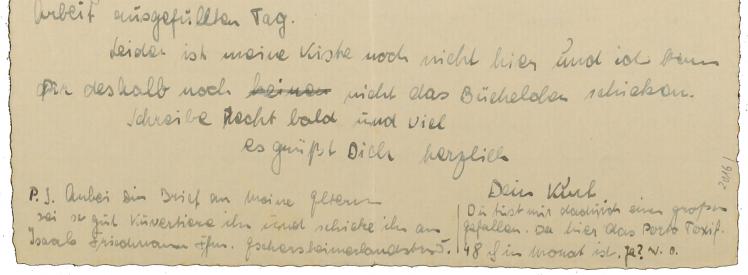 Arbeit ausgefüllten Tag.
Leider ist meine Kiste noch nicht hier und ich kann
Dir deshalb noch keinen nicht das Büchelchen schicken.
Schreibe recht bald und viel
es grüßt Dich herzlich
Dein Kurt
P.S. Anbei ein Brief an meine Eltern
sei so gut kuvertiere ihn und schicke ihn an
Isaak Friedmann Ffm. Eschersheimerlandstr.
Du tust mir dadurch einen großen
gefallen. Da hier das Porto
48 im Monat ist. ja? w. o.
2016